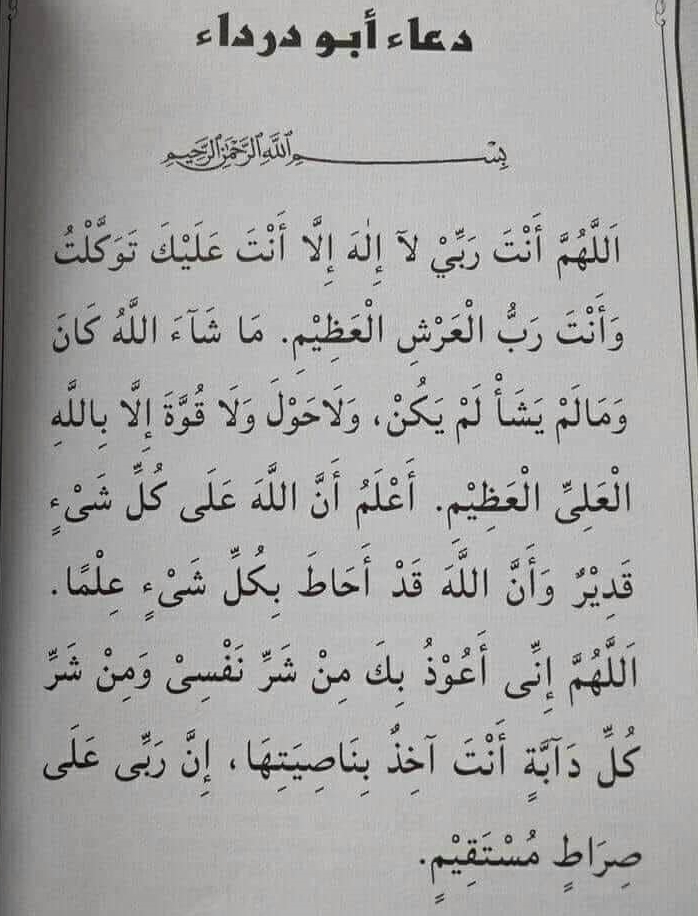 دعاء أبو درداء
بِسْمِ اللَّهِ الرَّحْمٰنِ الرَّحِيمِ
اَللَّهُمَّ أَنْتَ رَبِّيْ لَآ إِلٰهَ إِلَّا أَنْتَ عَلَيْكَ تَوَكَّلْتُ
وَأَنْتَ رَبُّ الْعَرْشِ الْعَظِيْمِ. مَا شَآءَ اللَّهُ كَانَ
وَمَالَمْ يَشَأْ لَمْ يَكُنْ، وَلَاحَوْلَ وَلَا قُوَّةَ إِلَّا بِاللَّهِ
الْعَلِىِّ الْعَظِيْمِ. أَعْلَمُ أَنَّ اللَّهَ عَلَى كُلِّ شَىْءٍ
قَدِيْرٌ وَأَنَّ اللَّهَ قَدْ أَحَاطَ بِكُلِّ شَىْءٍ عِلْمًا.
اَللَّهُمَّ إِنِّى أَعُوْذُ بِكَ مِنْ شَرِّ نَفْسِىْ وَمِنْ شَرِّ
كُلِّ دَآبَّةٍ أَنْتَ آخِذٌ بِنَاصِيَتِهَا، إِنَّ رَبِّى عَلَى
صِرَاطٍ مُسْتَقِيْمٍ.